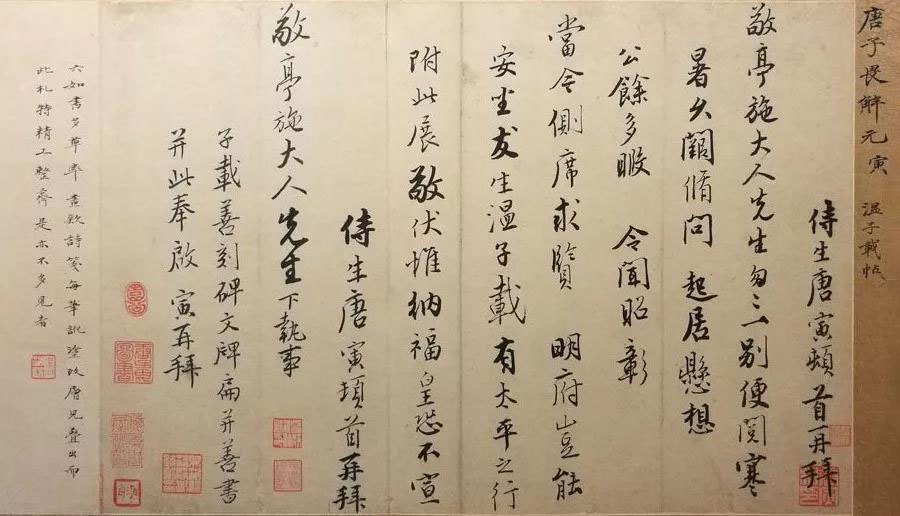 唐子畏解元寅 温子載帖
侍生唐寅頓首再拜
敬亭施大人先生勿〻一別便閲寒
暑久闊脩問 起居懸想
公餘多暇 令聞昭彰
當今側席求賢 明府豈能
安坐友生溫子載有太平之行
附此展敬伏惟納福皇恐不宣
侍生唐寅頓首再拜
敬亭施大人先生下執事
子載善刻碑文牌扁并善書
并此奉啟 寅再拜
六如書多草率畫款詩箋每筆訛塗改層見疊出而
此札特精工整齊是亦不多見者